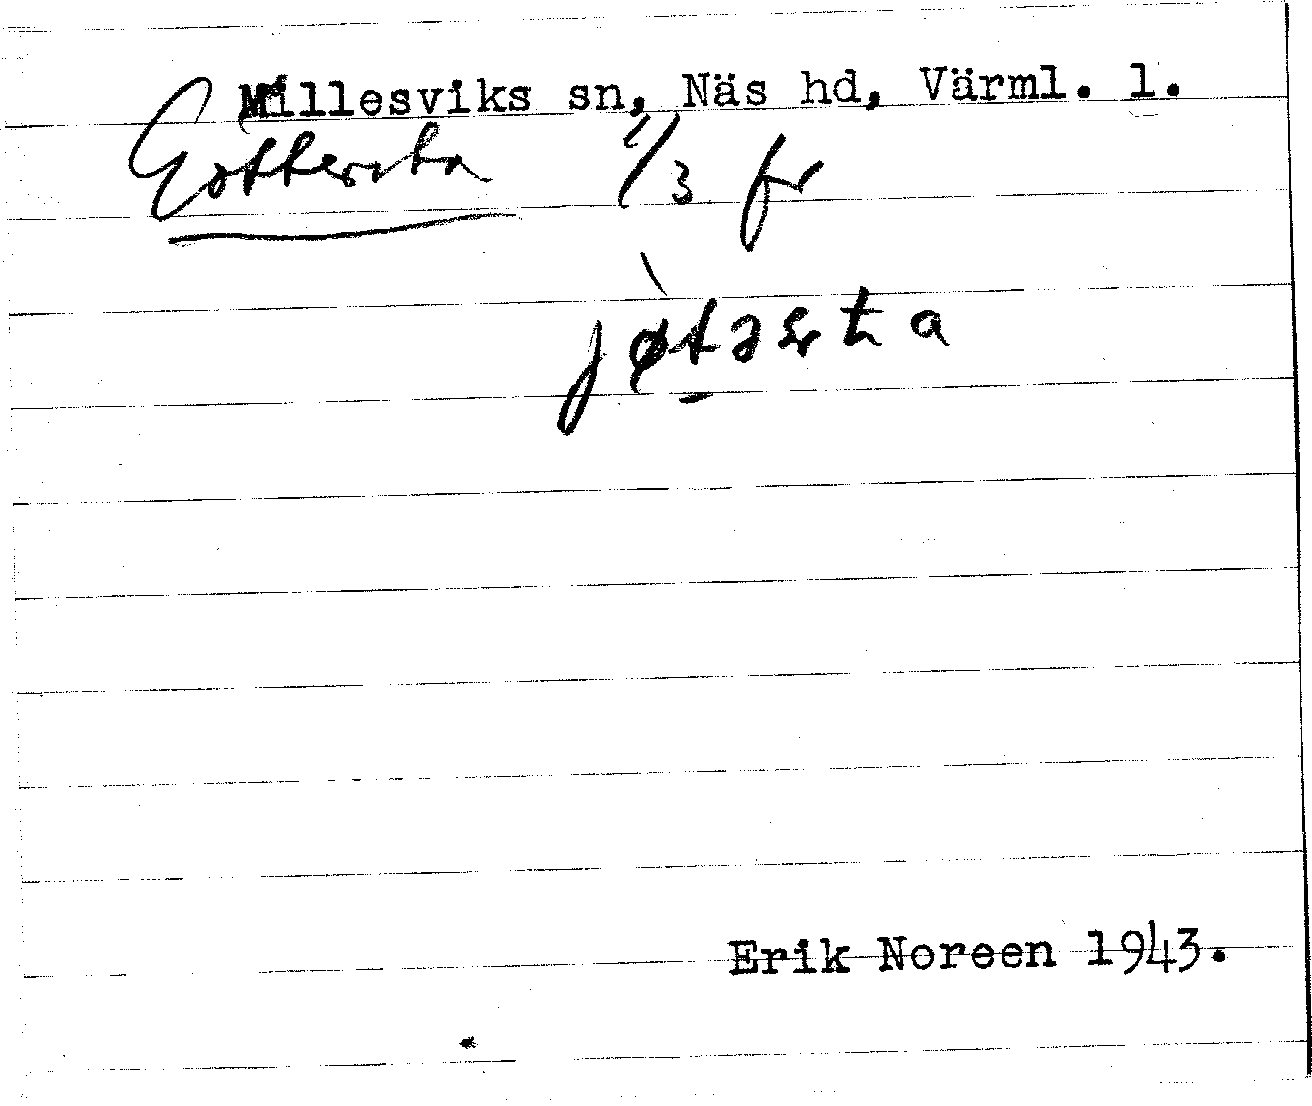 Millesviks sn, Näs hd, Värml. l.
Göttersta 1/3 fr
Erik Noreen 1943.